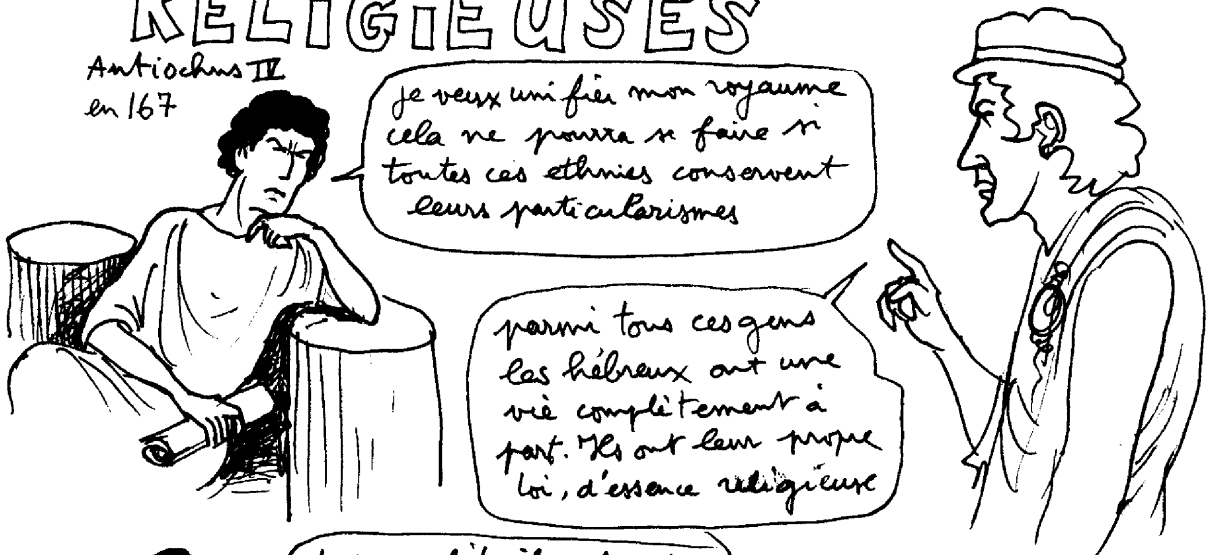 RELIGIEUSES
Antiochus IV
en 167
je veux unifier mon royaume
cela ne pourra se faire si
toutes ces ethnies conservent
leurs particularismes
parmi tous ces gens
les hébreux ont une
vie complètement à
part. Ils ont leur propre
loi, d'essence religieuse